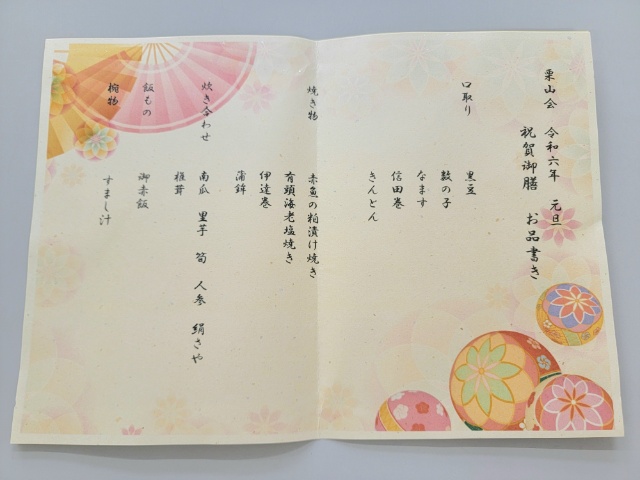 栗山会　令和六年　元旦
祝賀御膳　お品書き
口取り
黒豆
数の子
なます
信田巻
きんとん
焼き物
赤魚の粕漬け焼き
有頭海老塩焼き
伊達巻
蒲鉾
炊き合わせ
南瓜　里芋　筍　人参　絹さや
椎茸
飯もの
御赤飯
椀物
すまし汁